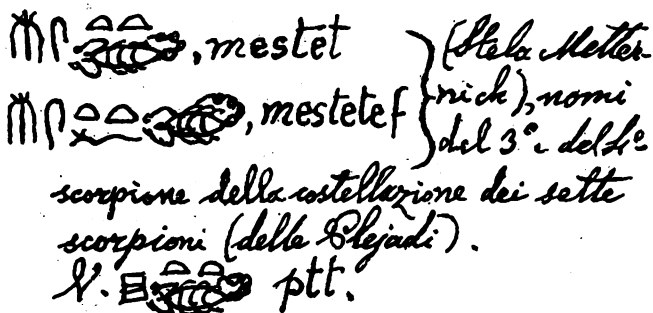 , mestet } (Stela Metter-
, mestetef nick), nomi
del 3º e del 4º
scorpione della costellazione dei sette
scorpioni (delle Plejadi).
V. ptt.